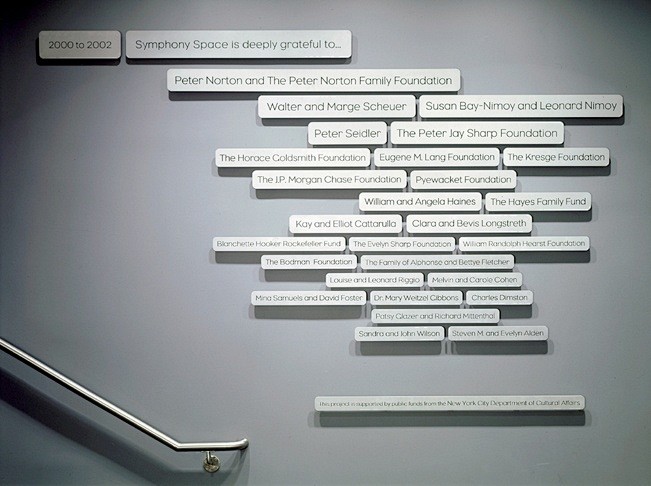 2000 to 2002 Symphony Space is deeply grateful to...
Peter Norton and The Peter Norton Family Foundation
Walter and Marge Scheuer Susan Bay-Nimoy and Leonard Nimoy
Peter Seidler The Peter Jay Sharp Foundation
The Horace Goldsmith Foundation Eugene M. Lang Foundation The Kresge Foundation
The J.P. Morgan Chase Foundation Pyewacket Foundation
William and Angela Haines The Hayes Family Fund
Kay and Elliot Cattarulla Clara and Bevis Longstreth
Blanchette Hooker Rockefeller Fund The Evelyn Sharp Foundation William Randolph Hearst Foundation
The Bodman Foundation The Family of Alphonse and Bettye Fletcher
Louise and Leonard Riggio Melvin and Carole Cohen
Mina Samuels and David Foster Dr. Mary Weitzel Gibbons Charles Dimston
Patsy Glazer and Richard Mittenthal
Sandra and John Wilson Steven M. and Evelyn Alden
This project is supported by public funds from the New York City Department of Cultural Affairs